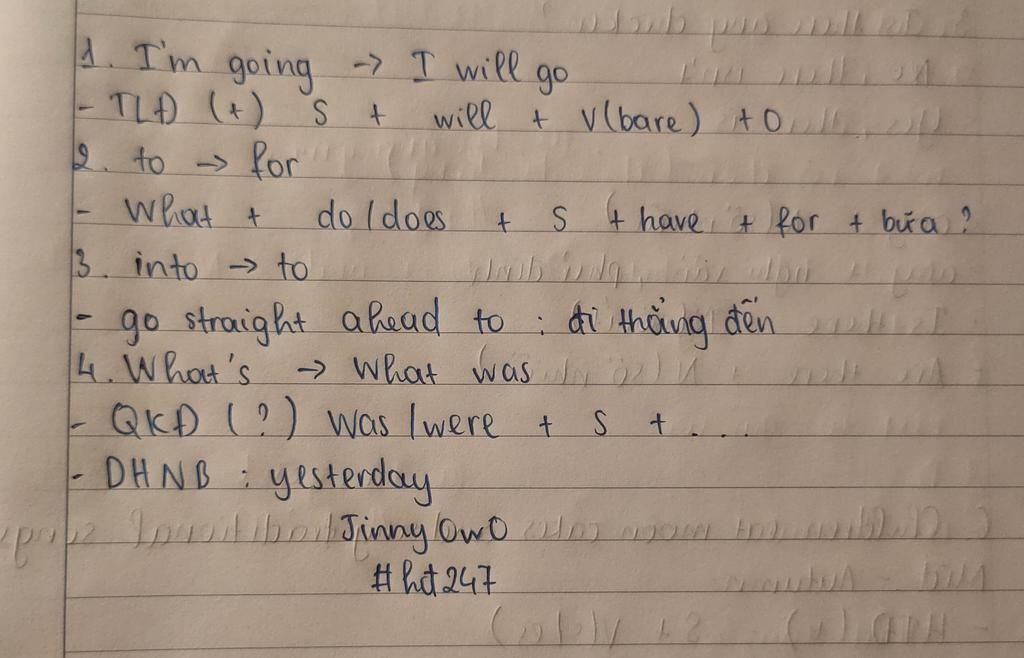 1. I'm going -> I will go
- TLĐ (+) S + will + V(bare) + O
2. to -> for
- What + do/does + S + have + for + bữa ?
3. into -> to
- go straight ahead to : đi thẳng đến
4. What's -> What was
- QKĐ (?) Was/were + S + ...
- DHNB : yesterday
Jinny/OwO
#hđ247